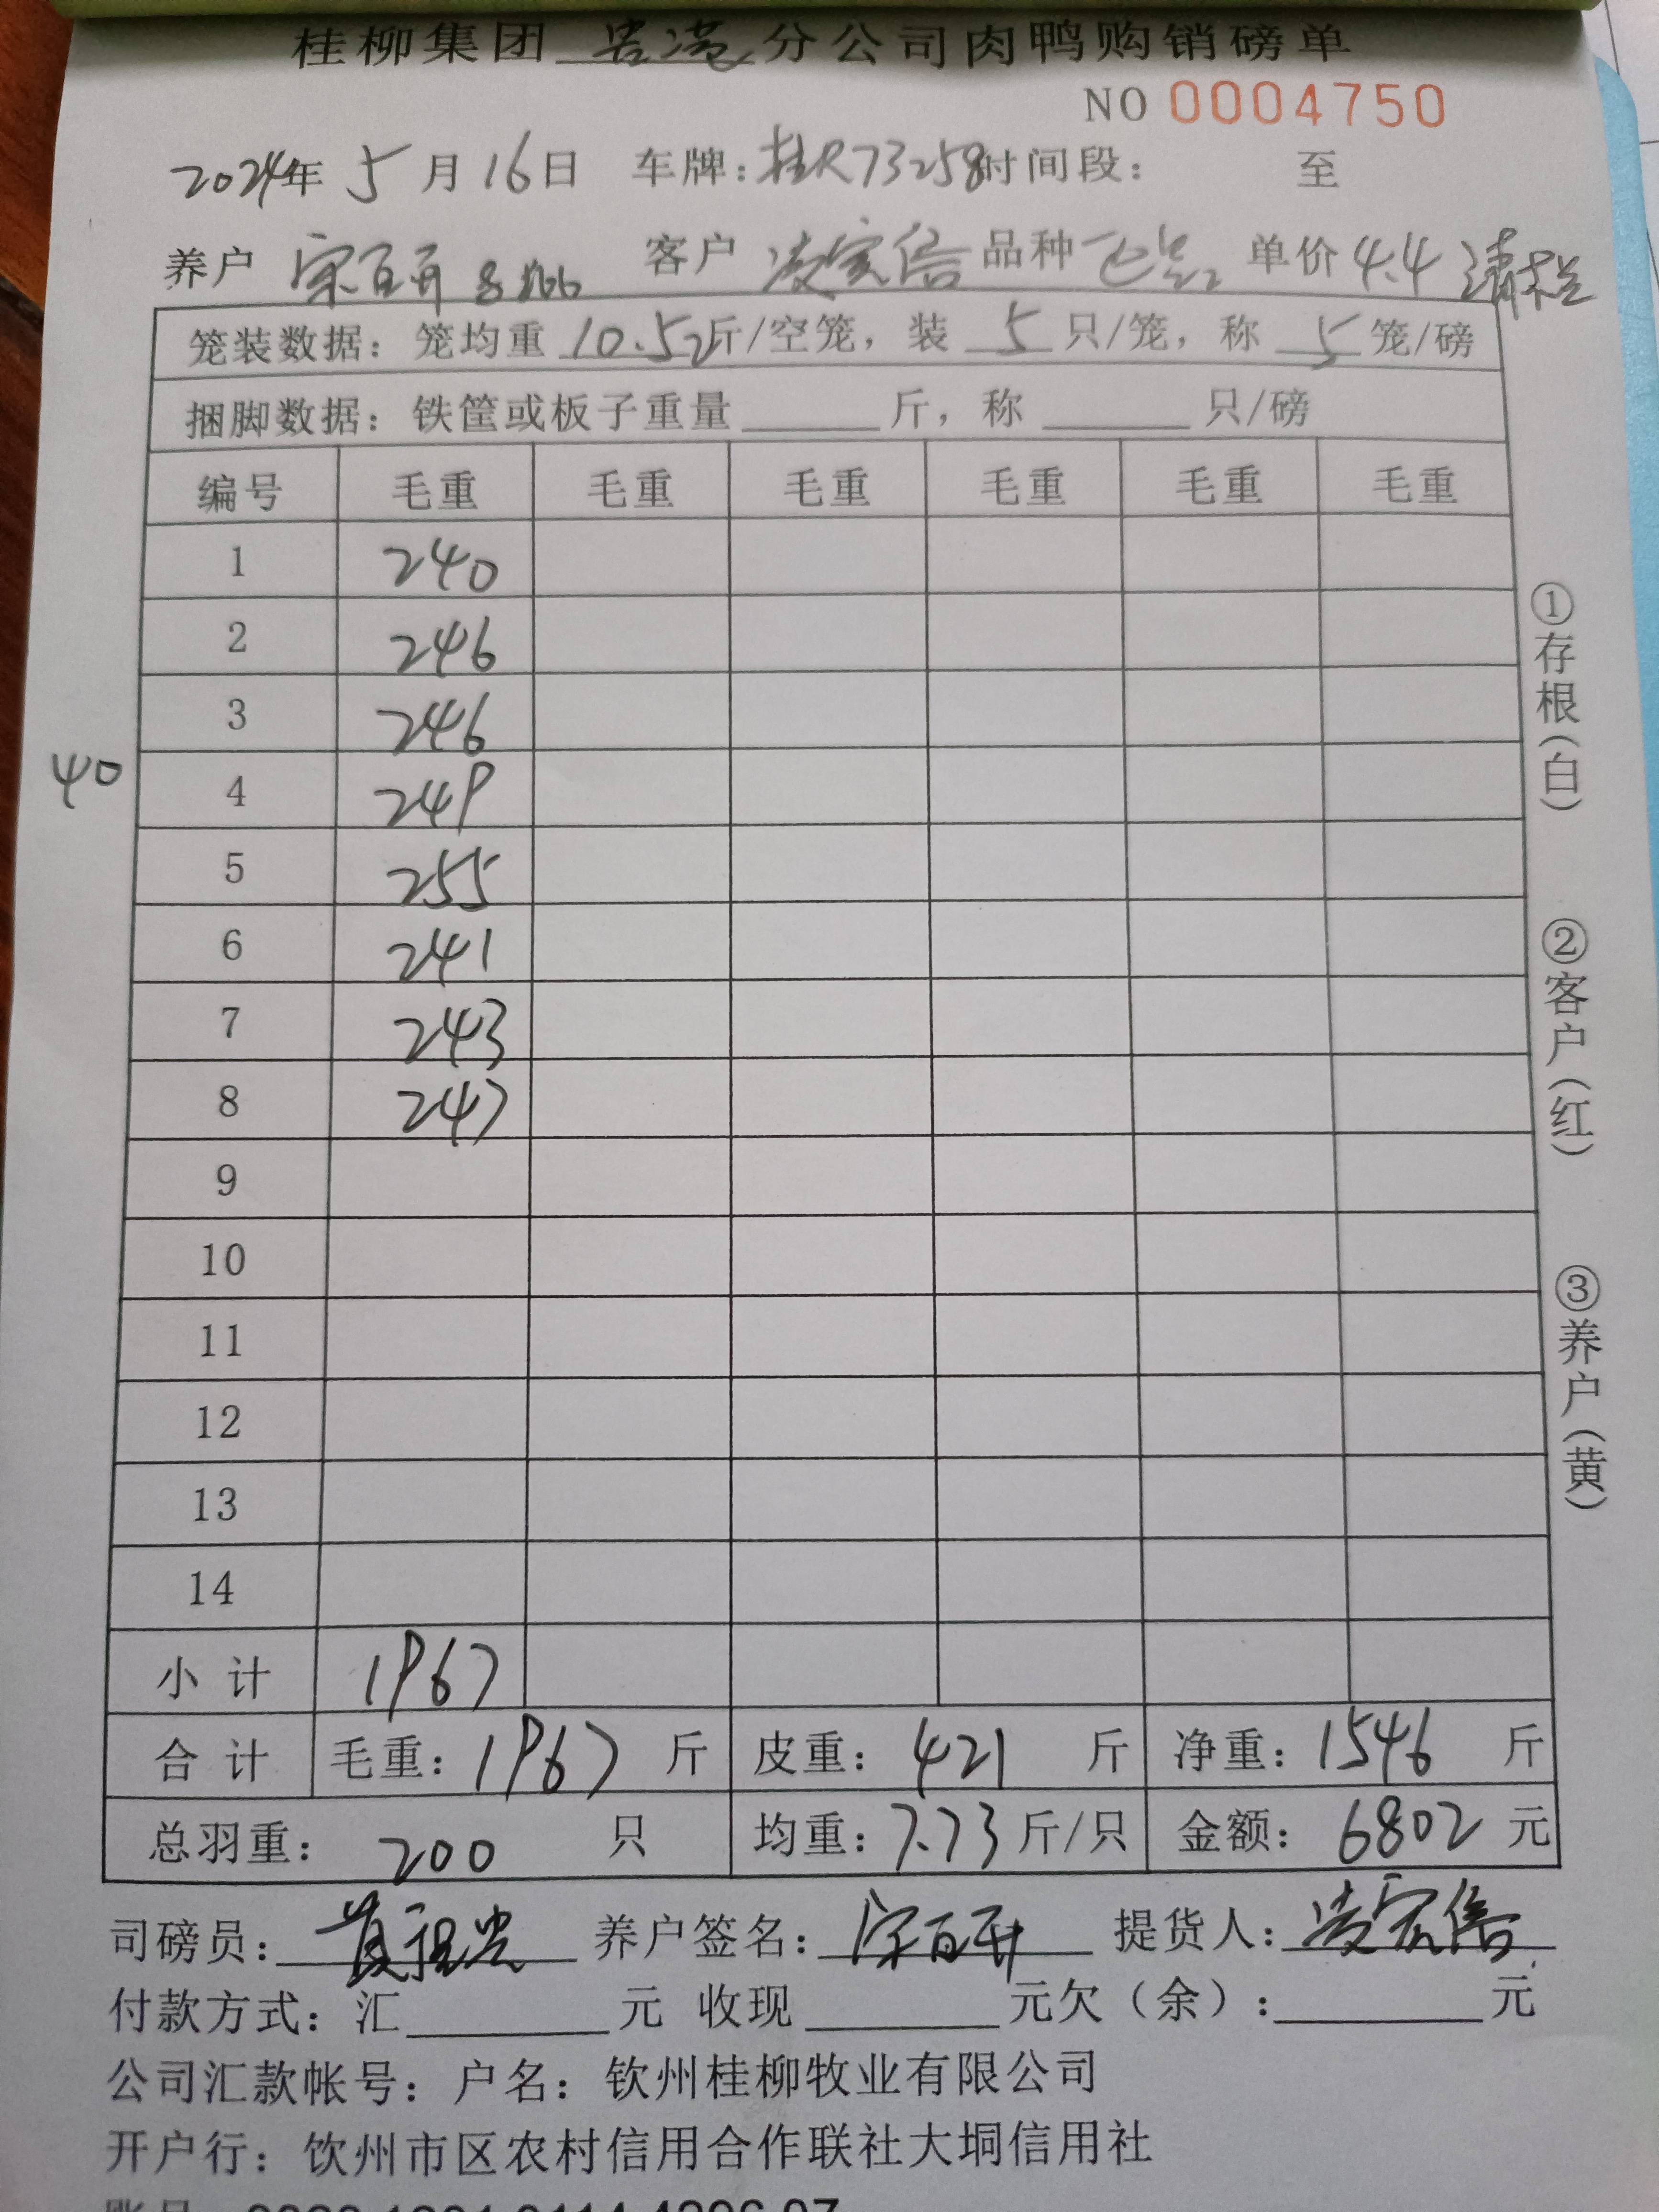 桂柳集团 贵港 分公司肉鸭购销磅单
NO 0004750
2024年 5 月 16 日 车牌：桂R73258 时间段： 至
养户 宋百开 客户 凌宏倍 品种 单价 4.4 清栏
笼装数据：笼均重 10.52 斤/空笼，装 5 只/笼，称 5 笼/磅
捆脚数据：铁筐或板子重量 斤，称 只/磅
编号 毛重 毛重 毛重 毛重 毛重 毛重
1 240
2 246
3 246
40
4 249
5 255
6 241
7 243
8 247
9
10
11
12
13
14
小计 1967
合计 毛重：1967 斤 皮重：421 斤 净重：1546 斤
总羽重：200 只 均重：7.73 斤/只 金额：6802 元
司磅员： 养户签名：宋百开 提货人：凌宏倍
付款方式：汇 元 收现 元欠（余）： 元
公司汇款帐号：户名：钦州桂柳牧业有限公司
开户行：钦州市区农村信用合作联社大垌信用社
①存根（白）
②客户（红）
③养户（黄）